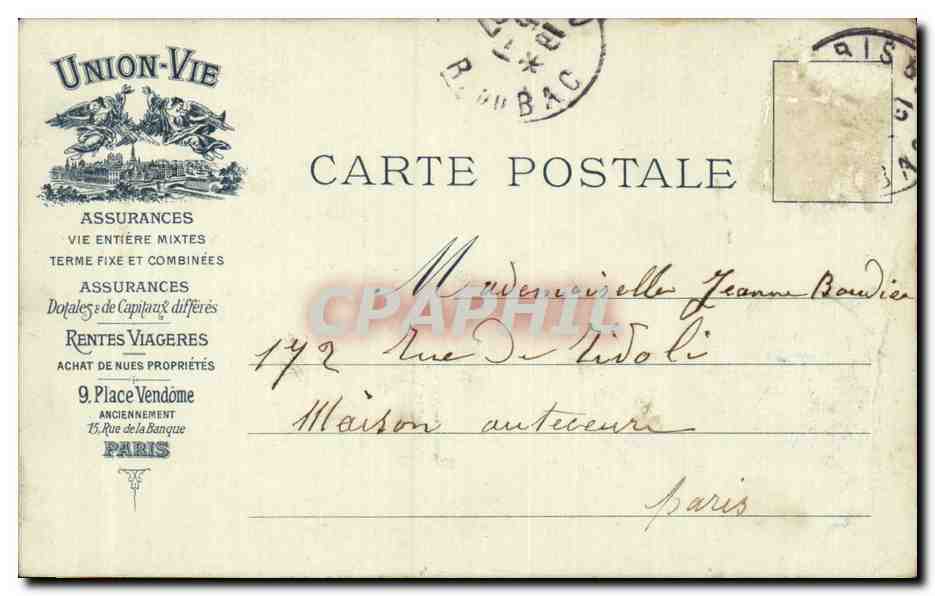 UNION-VIE
ASSURANCES
VIE ENTIÈRE MIXTES
TERME FIXE ET COMBINÉES
ASSURANCES
Dotales & de Capitaux différés
RENTES VIAGERES
ACHAT DE NUES PROPRIÉTÉS
9, Place Vendôme
ANCIENNEMENT
15, Rue de la Banque
PARIS
R. DU BAC
RIS
CARTE POSTALE
CPAPHIL
Mademoiselle Jeanne
172 Rue de Tivoli
Maison
paris